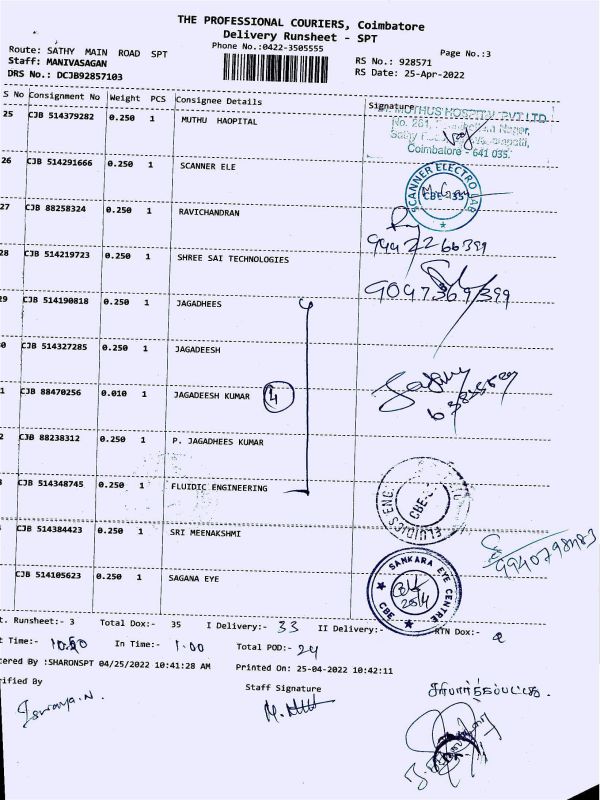 THE PROFESSIONAL COURIERS, Coimbatore
Delivery Runsheet - SPT
Phone No.:0422-3505555
Page No.:3
Route: SATHY MAIN ROAD SPT
Staff: MANIVASAGAN
RS No.: 928571
DRS No.: DCJB92857103
RS Date: 25-Apr-2022
S No Consignment No Weight PCS Consignee Details Signature
25 CJB 514379282 0.250 1 MUTHU HAOPITAL
MUTHUS HOSPITAL PVT LTD
No. 261, Nagar,
Coimbatore - 641 035.
26 CJB 514291666 0.250 1 SCANNER ELE
SCANNER ELECTRO LAB
CBE-35
27 CJB 88258324 0.250 1 RAVICHANDRAN
28 CJB 514219723 0.250 1 SHREE SAI TECHNOLOGIES
29 CJB 514190818 0.250 1 JAGADHEES
0 CJB 514327285 0.250 1 JAGADEESH
1 CJB 88470256 0.010 1 JAGADEESH KUMAR 4
2 CJB 88238312 0.250 1 P. JAGADHEES KUMAR
CJB 514348745 0.250 1 FLUIDIC ENGINEERING
FLUIDICS ENG
CBE-
CJB 514384423 0.250 1 SRI MEENAKSHMI
9940798483
CJB 514105623 0.250 1 SAGANA EYE
SANKARA EYE CENTRE
CBE
t. Runsheet:- 3 Total Dox:- 35 I Delivery:- 33 II Delivery:- RTN Dox:- 2
t Time:- 10.50 In Time:- 1.00 Total POD:- 24
tered By :SHARONSPT 04/25/2022 10:41:28 AM Printed On: 25-04-2022 10:42:11
rified By
Staff Signature
சரிபார்க்கப்பட்டது.